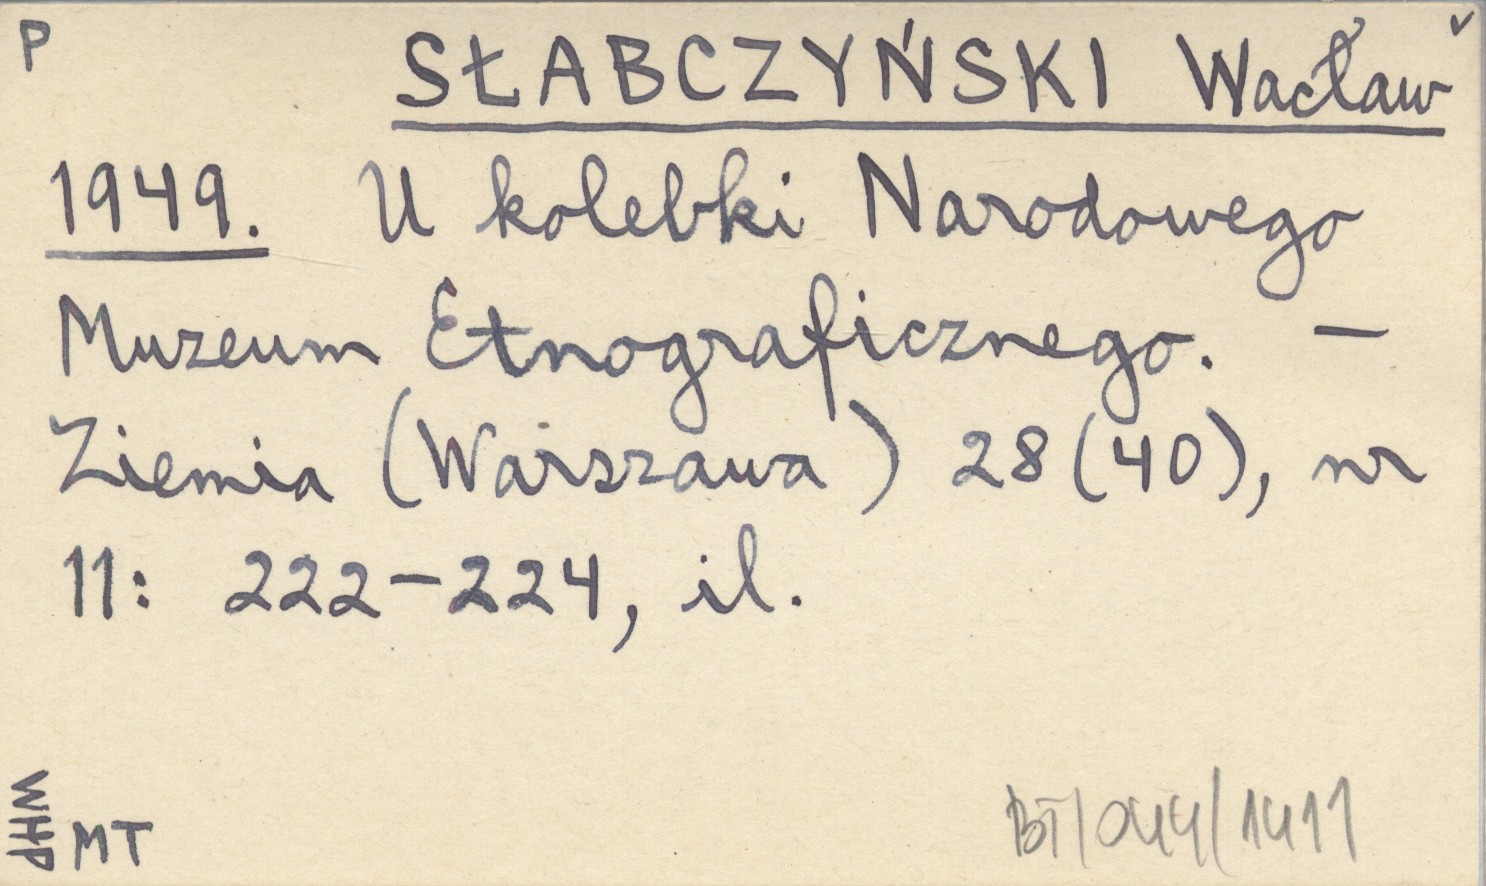 P
SŁABCZYŃSKI Wacław ˅
1949. U kolebki Narodowego
Muzeum Etnograficznego. —
Ziemia (Warszawa) 28(40), nr
11: 222-224, il.
WHP
MT
BT/044/1411